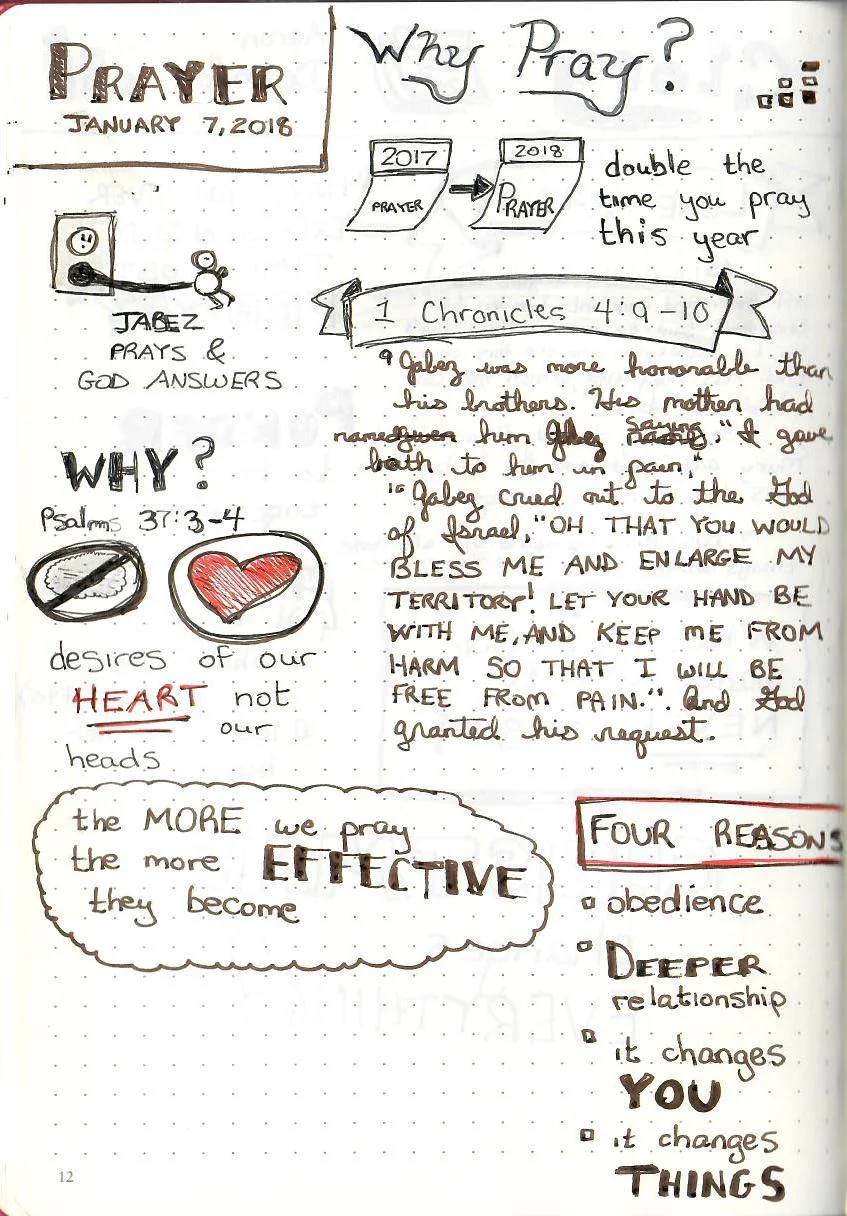 PRAYER
JANUARY 7, 2018
Why Pray?
2017
PRAYER
2018
PRAYER
double the
time you pray
this year
JABEZ
PRAYS &
GOD ANSWERS
1 Chronicles 4:9-10
9 Jabez was more honorable than
his brothers. His mother had
named him Jabez saying, "I gave
birth to him in pain."
10 Jabez cried out to the God
of Israel, "OH THAT YOU WOULD
BLESS ME AND ENLARGE MY
TERRITORY! LET YOUR HAND BE
WITH ME, AND KEEP ME FROM
HARM SO THAT I WILL BE
FREE FROM PAIN.". And God
granted his request.
WHY?
Psalms 37:3-4
desires of our
HEART not
our
heads
the MORE we pray
the more EFFECTIVE
they become
FOUR REASONS
obedience
DEEPER
relationship
it changes
YOU
it changes
THINGS
12